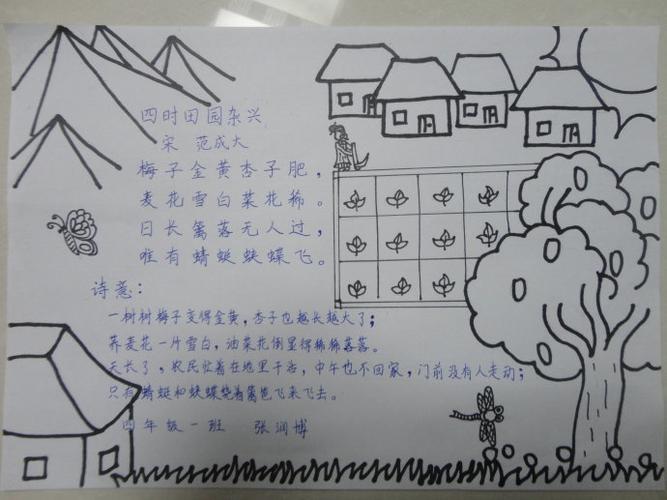 四时田园杂兴
宋 范成大
梅子金黄杏子肥，
麦花雪白菜花稀。
日长篱落无人过，
唯有蜻蜓蛱蝶飞。
诗意：
一树树梅子变得金黄，杏子也越长越大了；
荞麦花一片雪白，油菜花倒显得稀稀落落。
天长了，农民忙着在地里干活，中午也不回家，门前没有人走动；
只有蜻蜓和蛱蝶绕着篱笆飞来飞去。
四年级一班 张润博